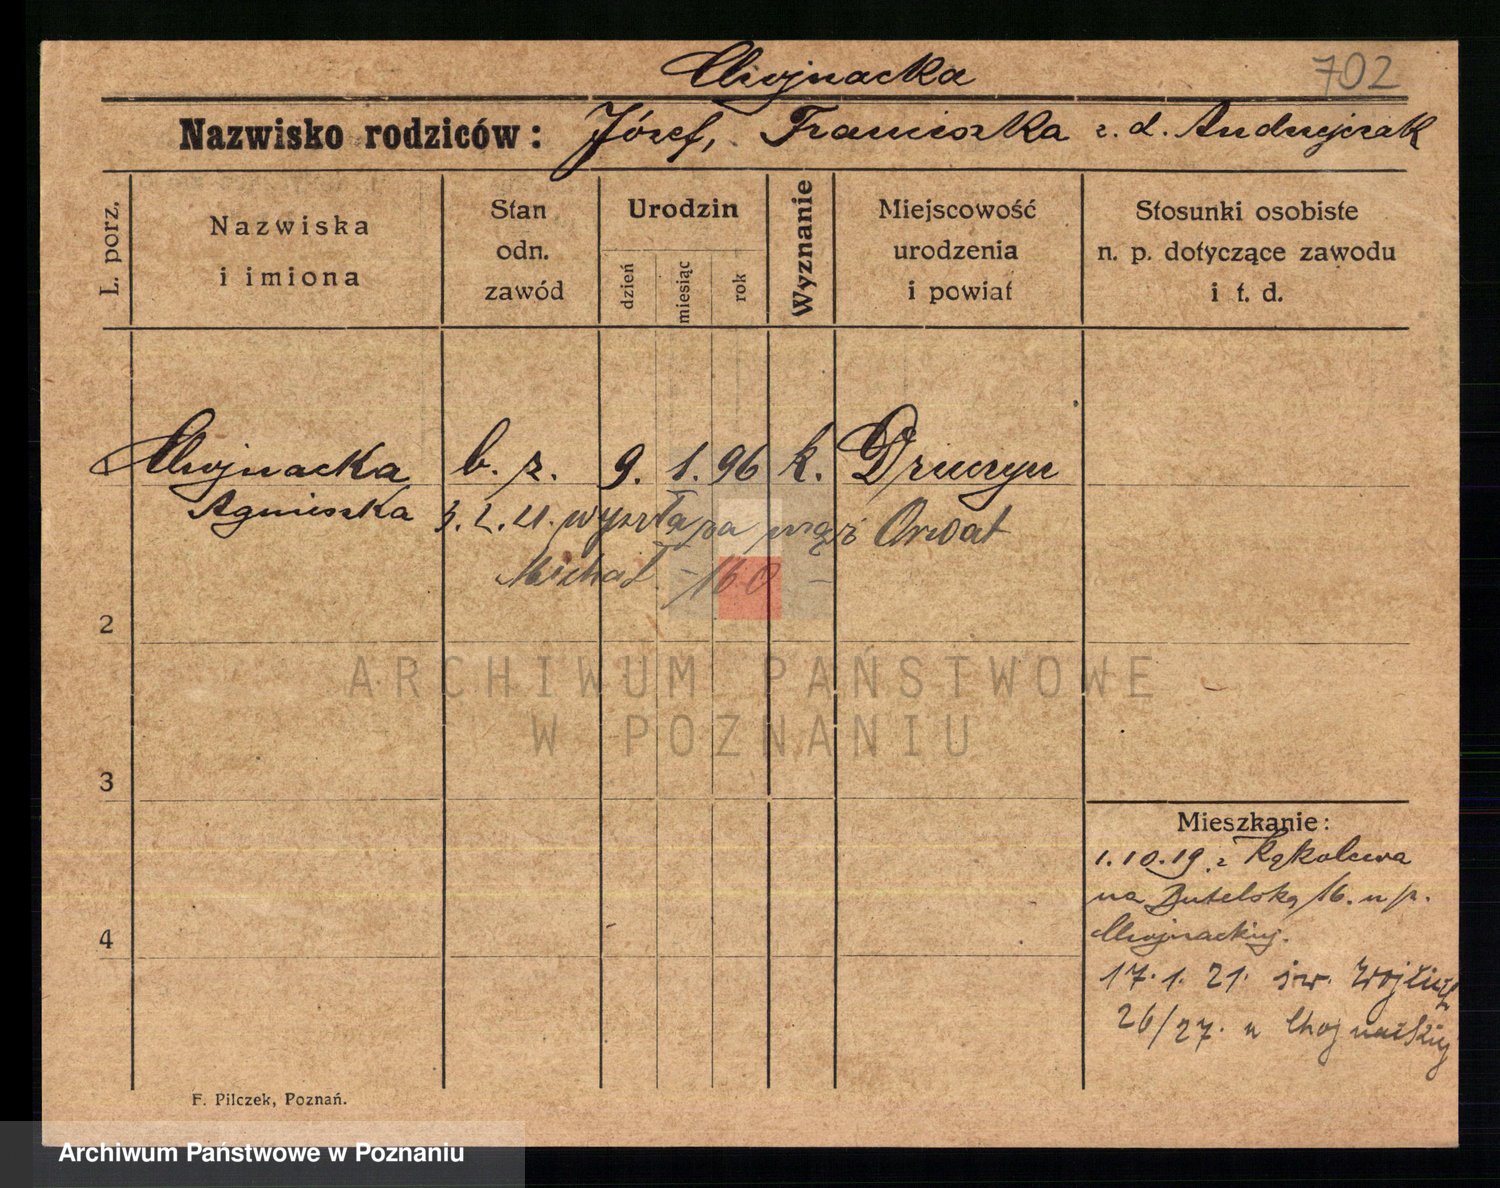 Chojnacka
702
Nazwisko rodziców: Józef, Franciszka z. d. Andrzejczak
L. porz.
Nazwiska i imiona
Stan odn. zawód
Urodzin
dzień
miesiąc
rok
Wyznanie
Miejscowość urodzenia i powiat
Stosunki osobiste n. p. dotyczące zawodu i t. d.
Chojnacka b. z. 9. 1. 96 k.
Agnieszka 3. 2. 21. wyszła za mąż Orwat
Michał - 160 -
2
3
4
ARCHIWUM PAŃSTWOWE
W POZNANIU
Mieszkanie:
1.10.19 z Kąkolewa
na 16. u p.
Chojnackiej.
17. 1. 21. św. Wojciech
26/27. u Chojnackiej
F. Pilczek, Poznań.
Archiwum Państwowe w Poznaniu